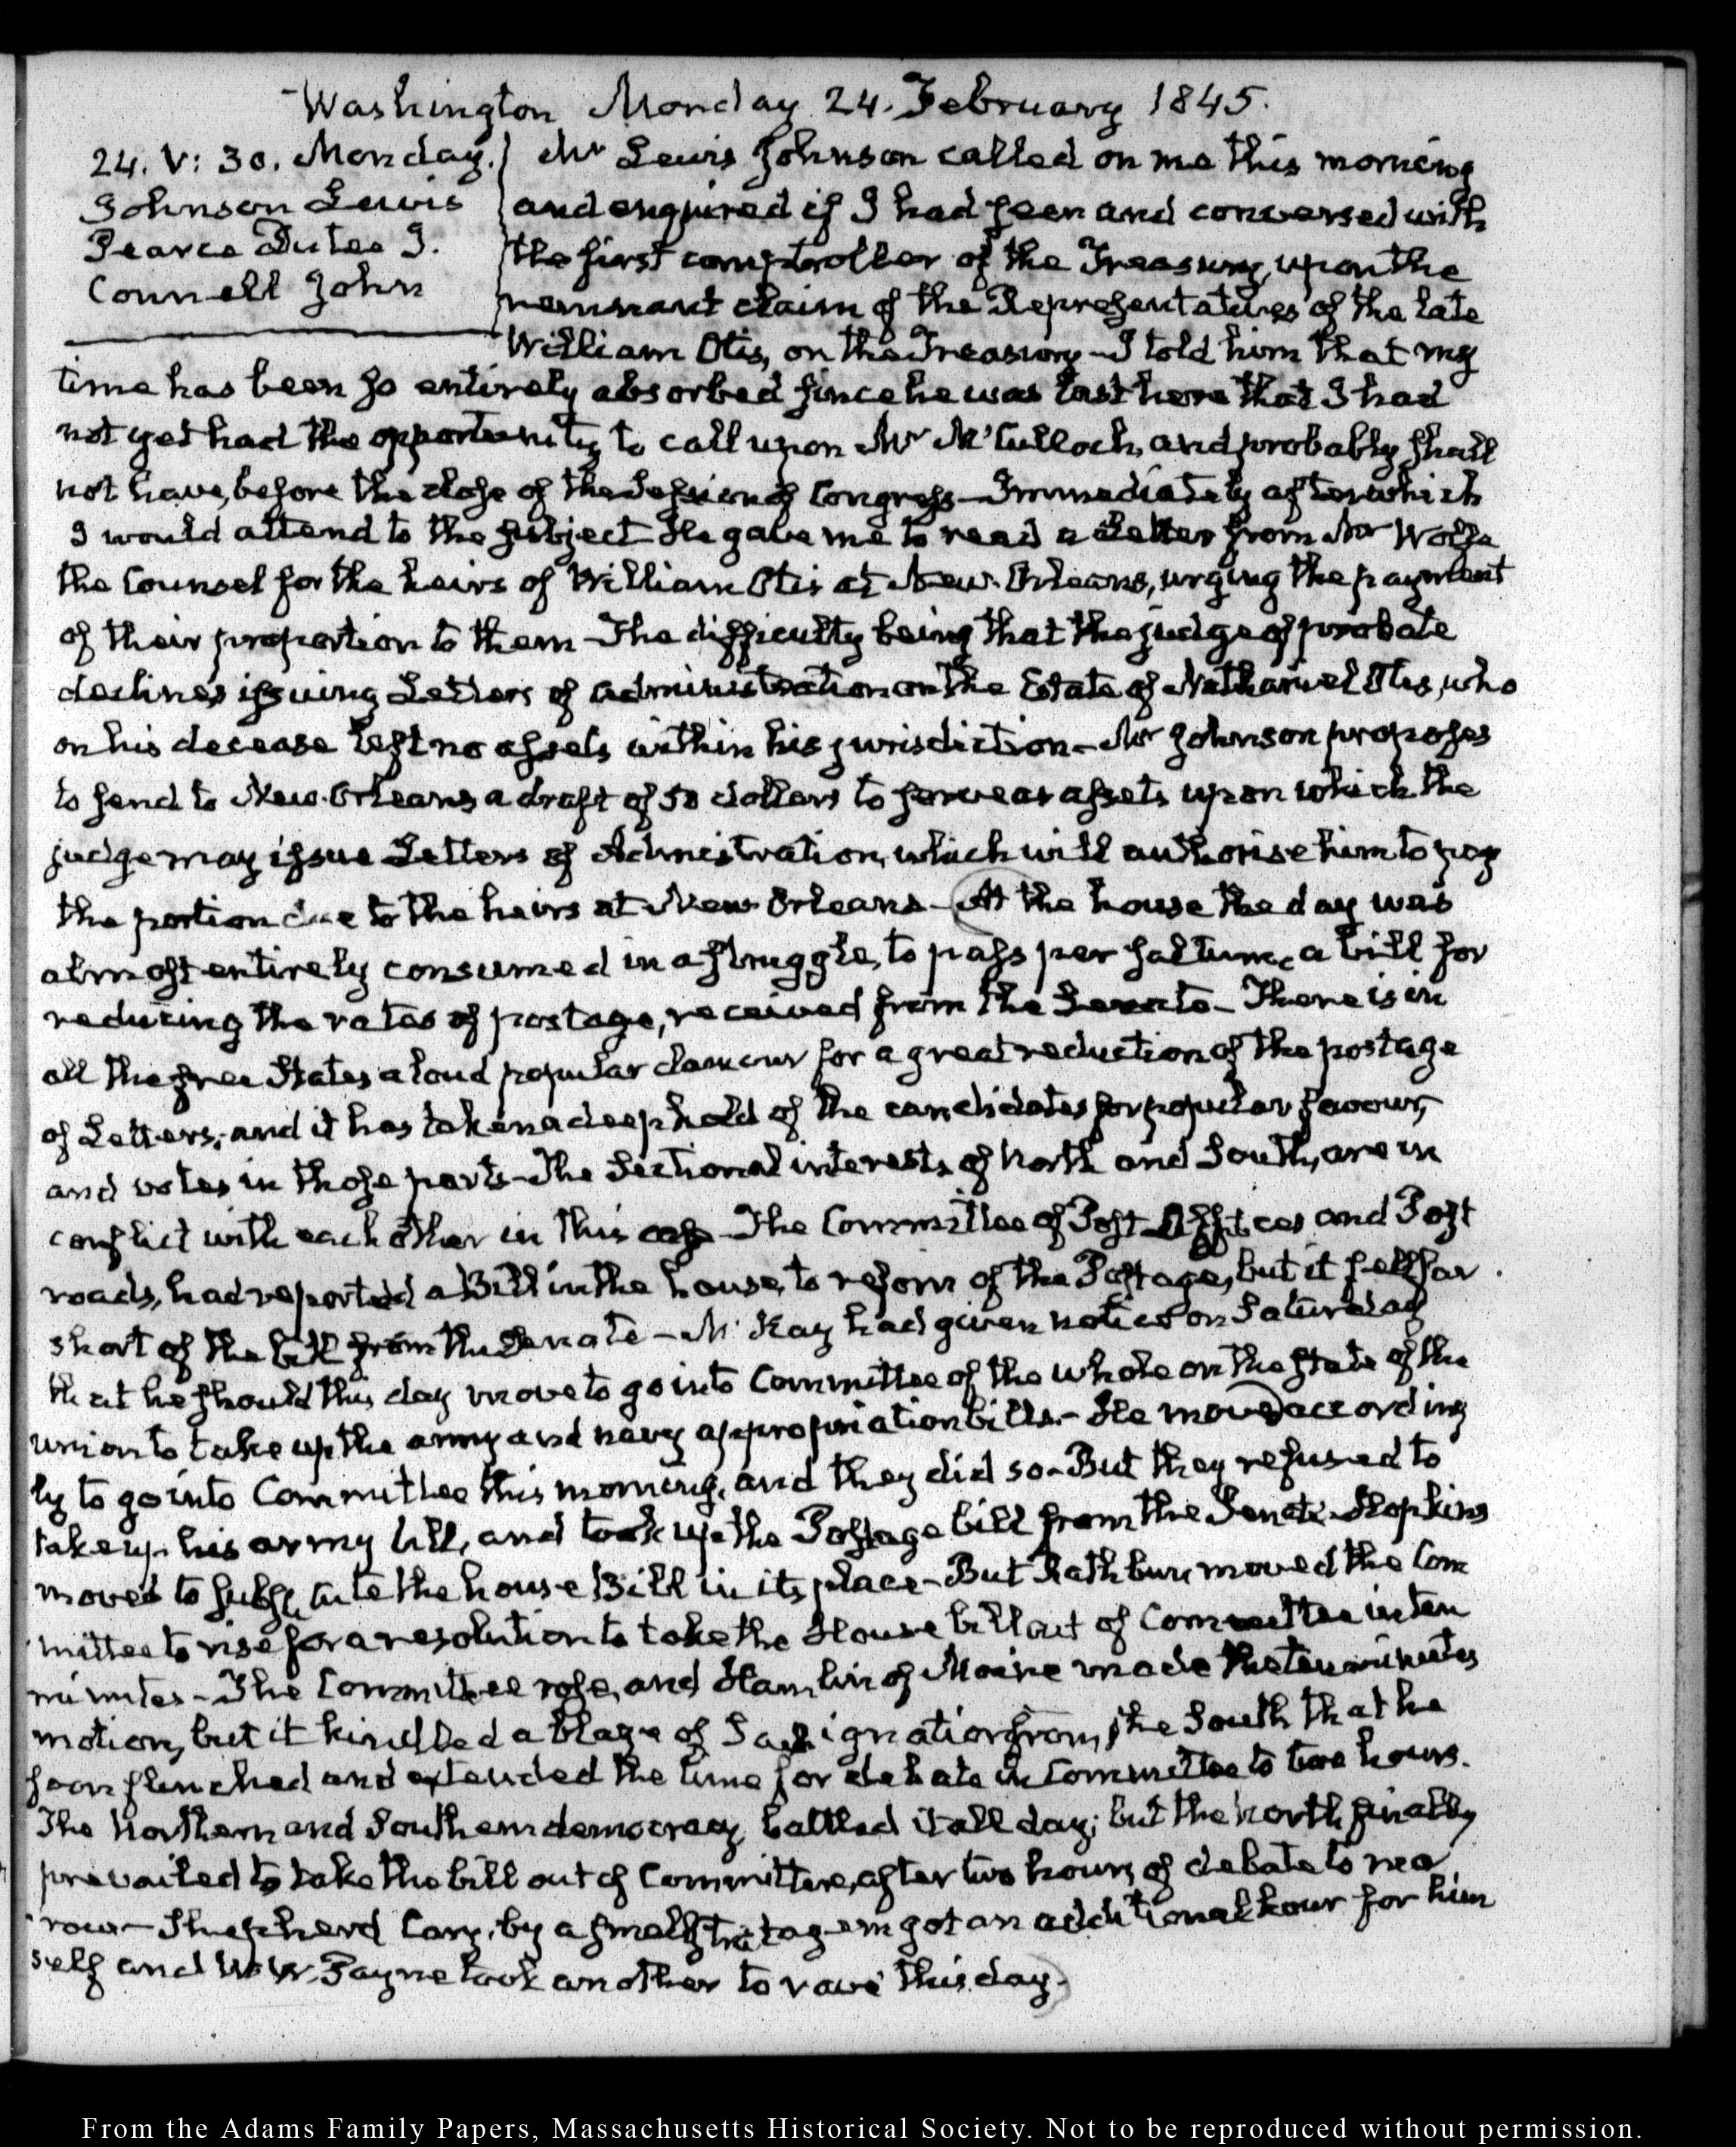 Washington Monday 24. February 1845.
24. V: 30. Monday.
Johnson Lewis
Pearce Dutee J.
Connell John
Mr Lewis Johnson called on me this morning
and enquired if I had seen and conversed with
the first comptroller of the Treasury, upon the
remnant claim of the Representatives of the late
William Otis, on the Treasury – I told him that my
time has been so entirely absorbed since he was last here that I had
not yet had the opportunity to call upon Mr McCulloch, and probably shall
not have, before the close of the Session of Congress – Immediately after which
I would attend to the subject He gave me to read a Letter from Mr
the Counsel for the heirs of William Otis at New-Orleans, urging the payment
of their proportion to them – The difficulty being that the judge of probate
declines issuing Letters of administration on the Estate of Nathaniel Otis, who
on his decease left no assets within his jurisdiction – Mr Johnson proposes
to send to New-Orleans a draft of 50 dollars to serve as assets upon which the
judge may issue Letters of Adminstration, which will authorise him to pay
the portion due to the heirs at New Orleans – At the house the day was
almost entirely consumed in a struggle, to pass per saltum, a bill for
reducing the rates of postage, received from the Senate – There is in
all the free States, a loud popular clamour for a great reduction of the postage
of Letters; and it has taken a deep hold of the candidates for popular favour,
and votes in those parts – The Sectional interests of North and South, are in
conflict with each other in this case – The Committee of Post Offices and Post
roads, had reported a Bill in the house, to reform of the Postage, but it fell far
short of the bill from the Senate – McKay had given notice on Saturday
that he should this day move to go into Committee of the whole on the state of the
union to take up the army and navy appropriation bills. – He moved according
ly to go into Committee this morning, and they did so – But they refused to
take up his army bill, and took up the Postage bill from the Senate. Hopkins
moved to substitute the house Bill in its place – But Rathbun moved the Com
mittee to rise for a resolution to take the House bill out of Committee in ten
minutes – The Committee rose, and Hamlin of Maine made the ten minutes
motion, but it kindled a blaze of Indignation from the South that he
soon flinched and extended the time for debate in Committee to two hours.
The Northern and Southern democracy battled it all day; but the North finally
prevailed to take the bill out of Committee, after two hours of debate to mor
row – Shepherd Cary, by a small stratagem got an additional hour for him
self and W. W. Payne took another to rave this day.
From the Adams Family Papers, Massachusetts Historical Society. Not to be reproduced without permission.